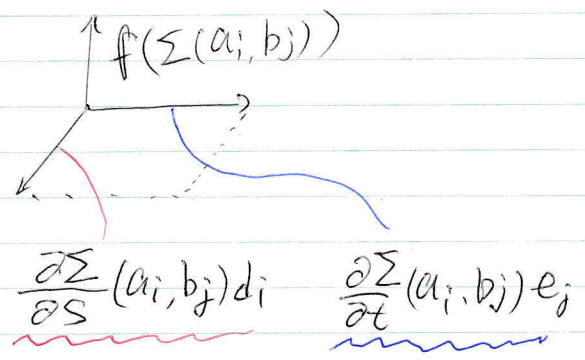 f(Σ(aᵢ,bⱼ))
∂Σ/∂s (aᵢ,bⱼ)dᵢ ∂Σ/∂t (aᵢ,bⱼ)eⱼ